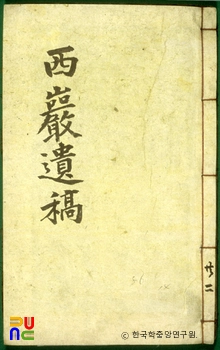 西巖遺稿
共二
PUNC
© 한국학중앙연구원